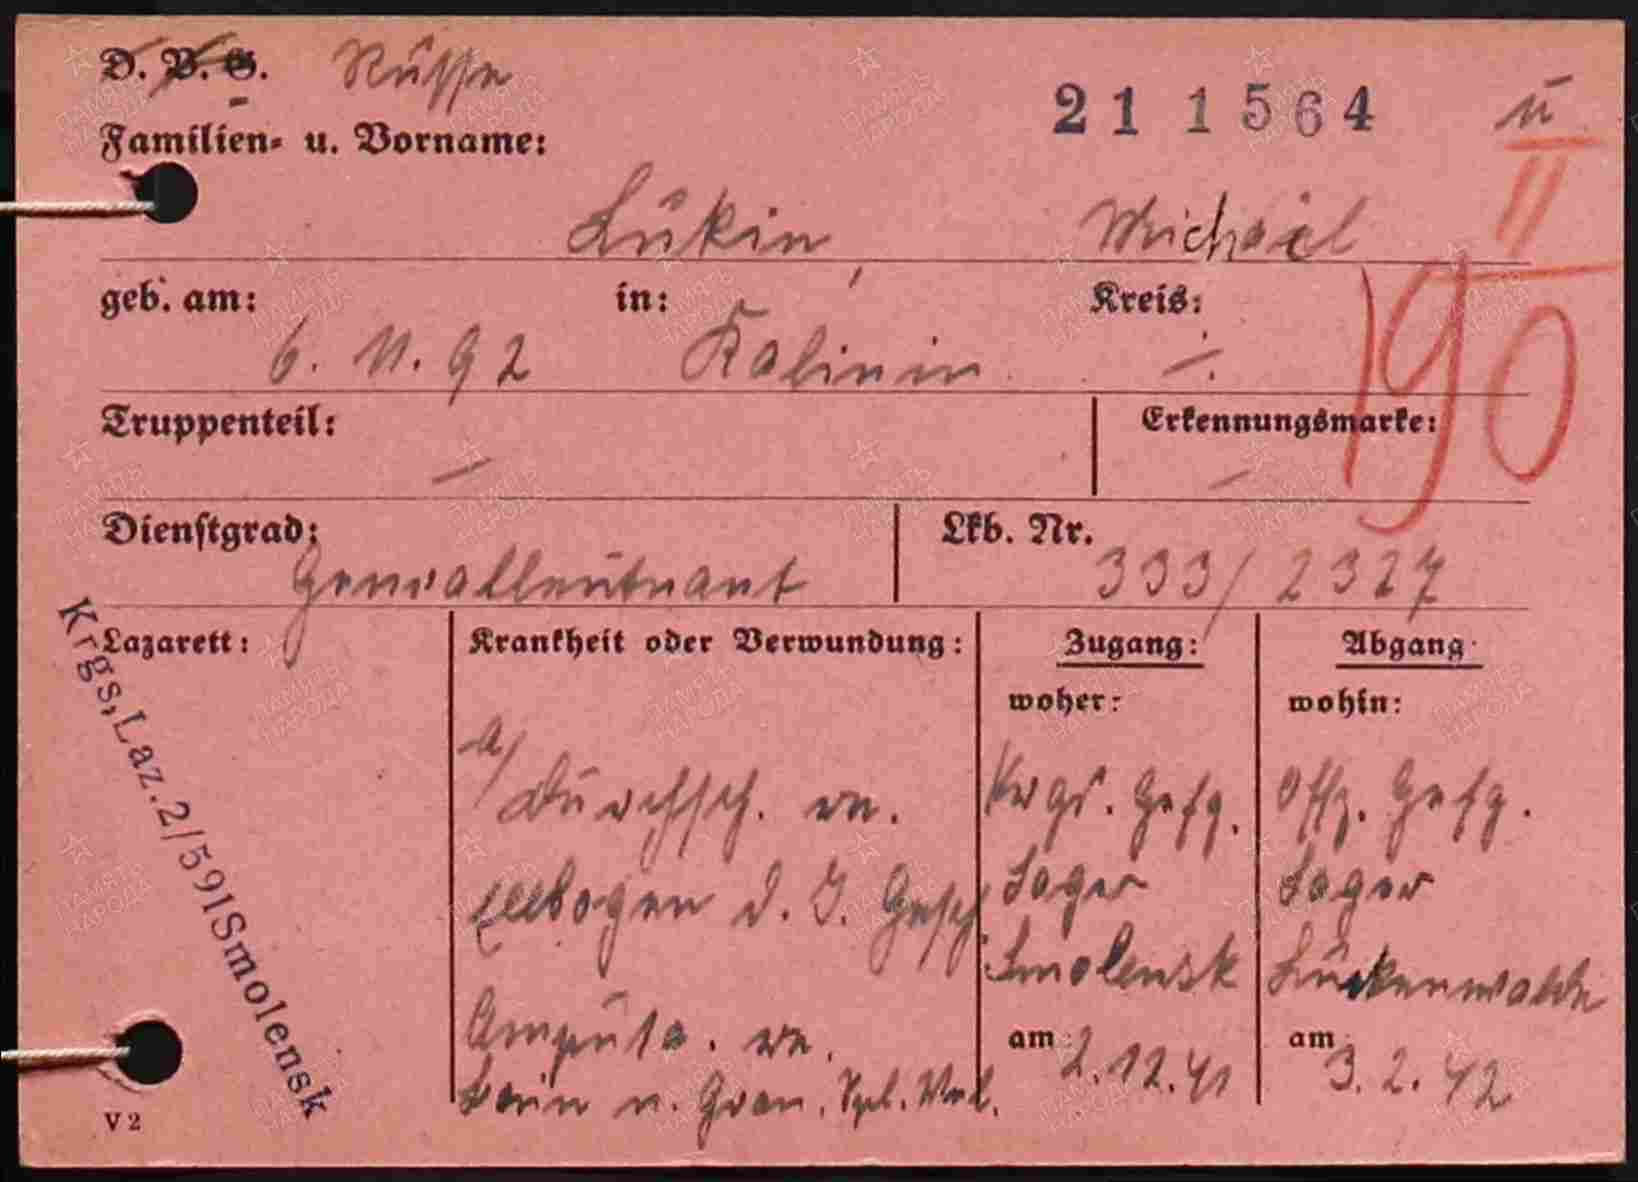 D. B. S. Russe
21 1564 u
Familien- u. Vorname:
II
Lukin, Michail
190
geb. am: in: Kreis:
6. 11. 92 Kalinin -/.
Truppenteil: Erkennungsmarke:
— —
Dienstgrad: Lkb. Nr.
Generalleutnant 333/2327
Lazarett: Krankheit oder Verwundung: Zugang: Abgang:
woher: wohin:
Krgs,Laz.2/591Smolensk
a/
Durchsch. re. Krgs. Gefg. Offz. Gefg.
Ellbogen d. I. Gesch Lager Lager
Smolensk Luckenwalde
Amputa. re. am: 2.12.41 am 3.2.42
Bein n. Gran. Spl. Verl.
V 2
ПАМЯТЬ НАРОДА